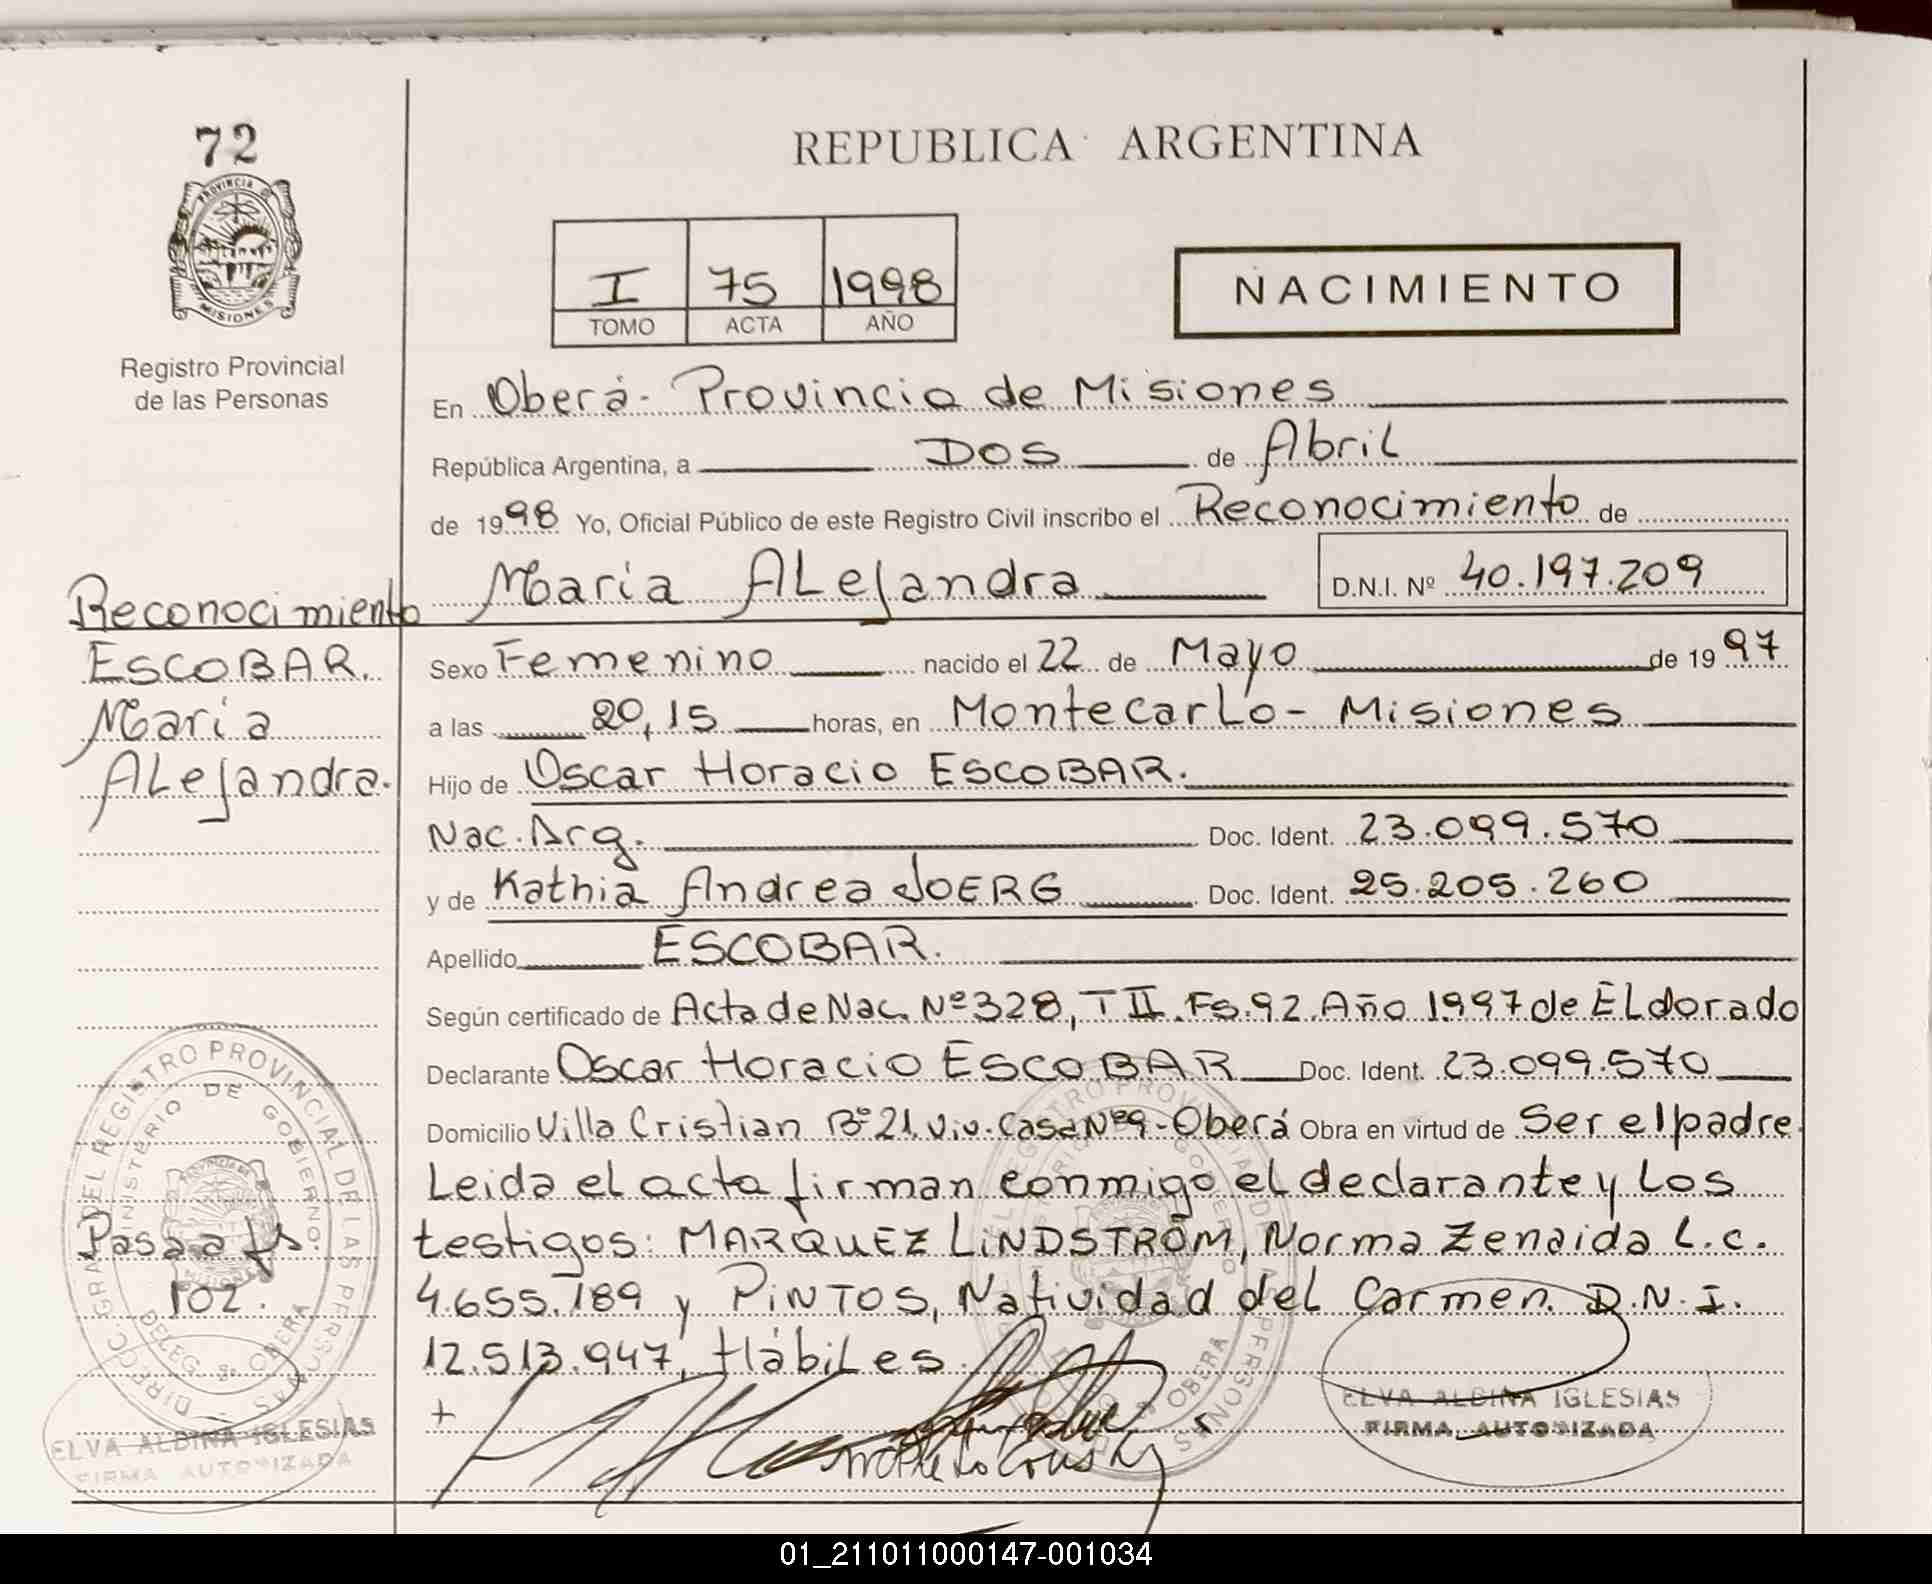 72
PROVINCIA DE
MISIONES
Registro Provincial
de las Personas
REPUBLICA ARGENTINA
I 75 1998
TOMO ACTA AÑO
NACIMIENTO
En Oberá - Provincia de Misiones
República Argentina, a Dos de Abril
de 1998 Yo, Oficial Público de este Registro Civil inscribo el Reconocimiento de
Maria ALejandra D.N.I. Nº 40.197.209
Reconocimiento
ESCOBAR.
Maria
ALejandra.
Sexo Femenino nacido el 22 de Mayo de 1997
a las 20,15 horas, en MontecarLo - Misiones
Hijo de Oscar Horacio ESCOBAR.
Nac. Arg. Doc. Ident. 23.099.570
y de Kathia Andrea JOERG Doc. Ident. 25.205.260
Apellido ESCOBAR.
Según certificado de Acta de Nac. Nº 328, T II. Fs. 92. Año 1997 de ELdorado
Declarante Oscar Horacio ESCOBAR Doc. Ident. 23.099.570
Domicilio Villa Cristian Bº 21. Viv. Casa Nº 9 - Oberá Obra en virtud de Ser el padre.
Leida el acta firman conmigo el declarante y Los
testigos: MARQUEZ LiNDSTRÖM, Norma Zenaida L.C.
4.655.189 y PiNTOS, Natividad del Carmen. D.N.I.
12.513.947, HábiLes.
Pasa a fs
102.
DIRECC. GRAL. DEL REGISTRO PROVINCIAL DE LAS PERSONAS
MINISTERIO DE GOBIERNO
DELEG. OBERÁ
ELVA ALBINA IGLESIAS
FIRMA AUTORIZADA
ELVA ALBINA IGLESIAS
FIRMA AUTORIZADA
01_211011000147-001034